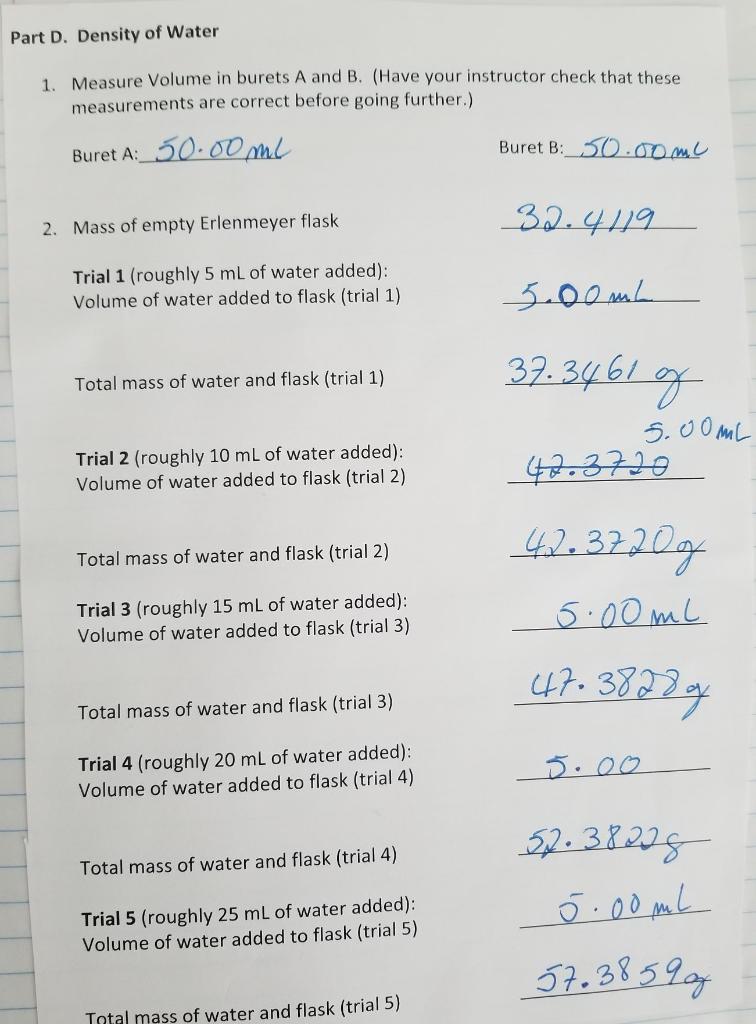 Part D. Density of Water
1. Measure Volume in burets A and B. (Have your instructor check that these
measurements are correct before going further.)
Buret A: 50.00 mL Buret B: 50.00 mL
2. Mass of empty Erlenmeyer flask 32.4119
Trial 1 (roughly 5 mL of water added):
Volume of water added to flask (trial 1) 5.00 mL
Total mass of water and flask (trial 1) 37.3461 g
5.00 mL
Trial 2 (roughly 10 mL of water added):
Volume of water added to flask (trial 2) 42.3720
Total mass of water and flask (trial 2) 42.3720 g
Trial 3 (roughly 15 mL of water added):
Volume of water added to flask (trial 3) 5.00 mL
Total mass of water and flask (trial 3) 47.3828 g
Trial 4 (roughly 20 mL of water added):
Volume of water added to flask (trial 4) 5.00
Total mass of water and flask (trial 4) 52.3822 g
Trial 5 (roughly 25 mL of water added):
Volume of water added to flask (trial 5) 5.00 mL
Total mass of water and flask (trial 5) 57.3859 g